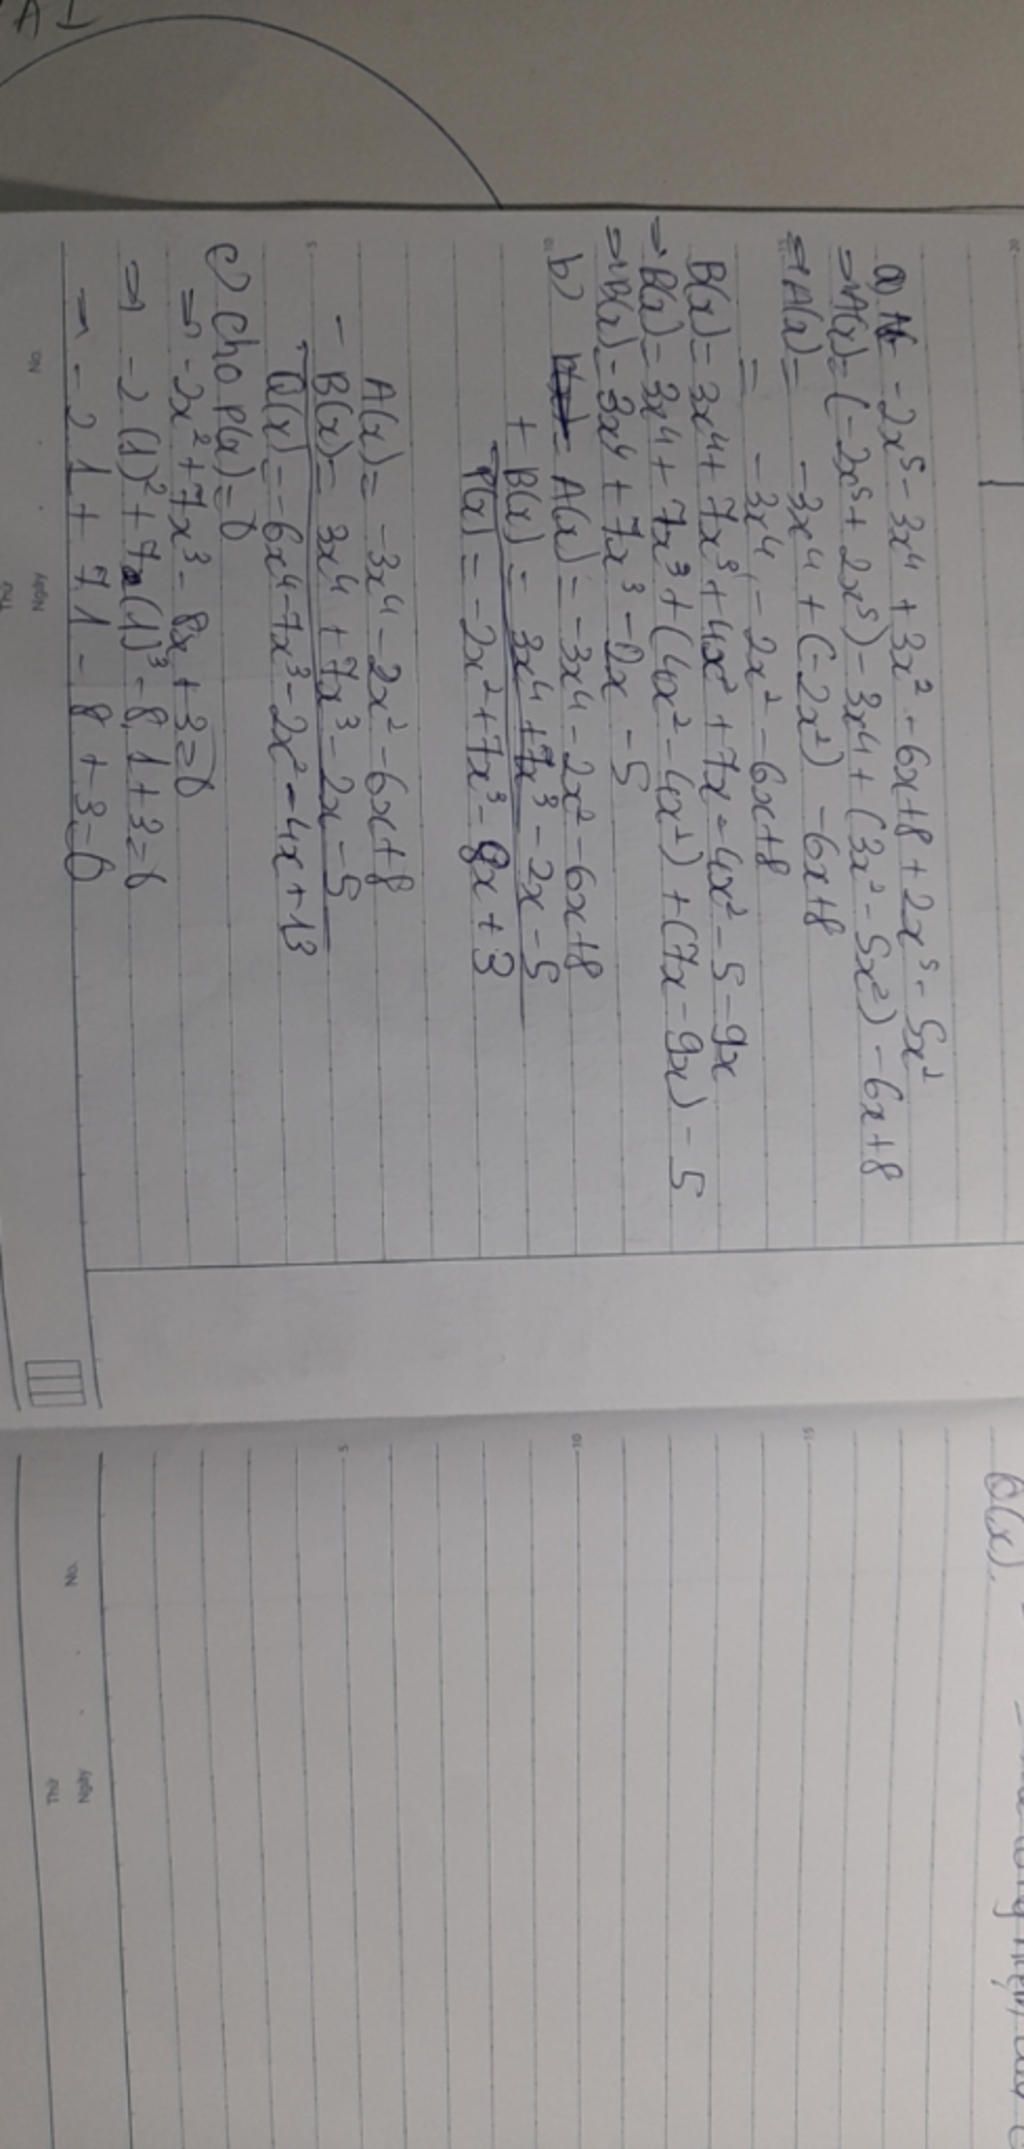 a) -2x⁵ - 3x⁴ + 3x² - 6x + 8 + 2x⁵ - 5x²
⇒ A(x) = (-2x⁵ + 2x⁵) - 3x⁴ + (3x² - 5x²) - 6x + 8
⇒ A(x) = -3x⁴ + (-2x²) - 6x + 8
= -3x⁴ - 2x² - 6x + 8
B(x) = 3x⁴ + 7x³ + 4x² + 7x - 4x² - 5 - 9x
⇒ B(x) = 3x⁴ + 7x³ + (4x² - 4x²) + (7x - 9x) - 5
⇒ B(x) = 3x⁴ + 7x³ - 2x - 5
b) A(x) = -3x⁴ - 2x² - 6x + 8
+ B(x) = 3x⁴ + 7x³ - 2x - 5
P(x) = -2x² + 7x³ - 8x + 3
A(x) = -3x⁴ - 2x² - 6x + 8
- B(x) = 3x⁴ + 7x³ - 2x - 5
Q(x) = -6x⁴ - 7x³ - 2x² - 4x + 13
c) Cho P(x) = 0
⇒ -2x² + 7x³ - 8x + 3 = 0
⇒ -2(1)² + 7.(1)³ - 8.1 + 3 = 0
⇒ -2.1 + 7.1 - 8 + 3 = 0
No.
Thứ
Ngày
Q(x).
No.
Thứ
Ngày
5
10
15
20